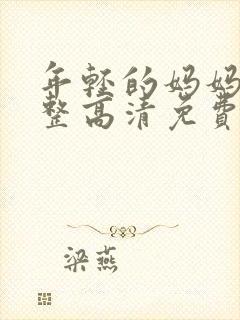 年轻的妈妈
整高清免费
梁燕